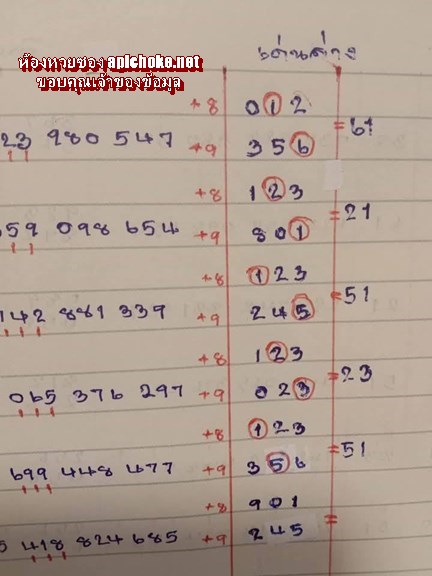 ห้องหวยซอง apichoke.net
ขอบคุณเจ้าของข้อมุล
เด่นล่าง
+8 012
23 980 547 +9 356 =61
+8 123
059 098 654 +9 801 =21
+8 123
142 881 339 +9 245 =51
+8 123
065 376 297 +9 023 =23
+8 123
699 448 477 +9 356 =51
+8 901
5 418 824 685 +9 245 =